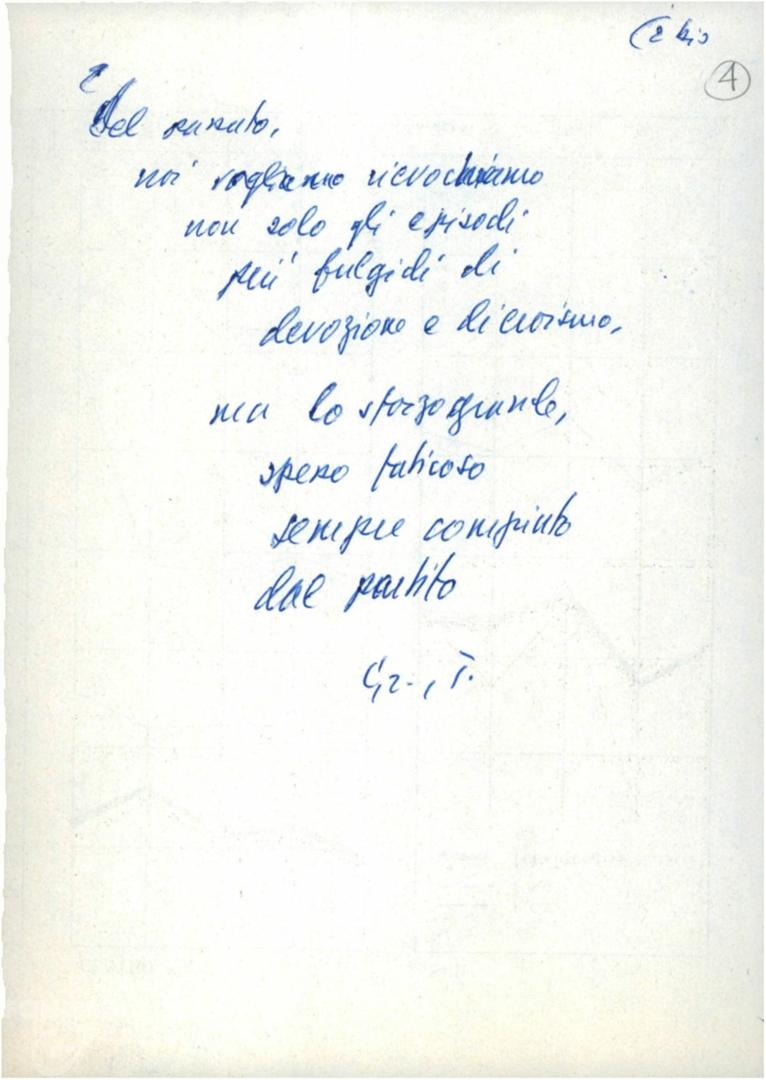 (2 bis
4
E del passato,
noi vogliamo rievochiamo
non solo gli episodi
più fulgidi di
devozione e di eroismo,
ma lo sforzo grande,
spesso faticoso
sempre compiuto
dal partito
Gr., T.